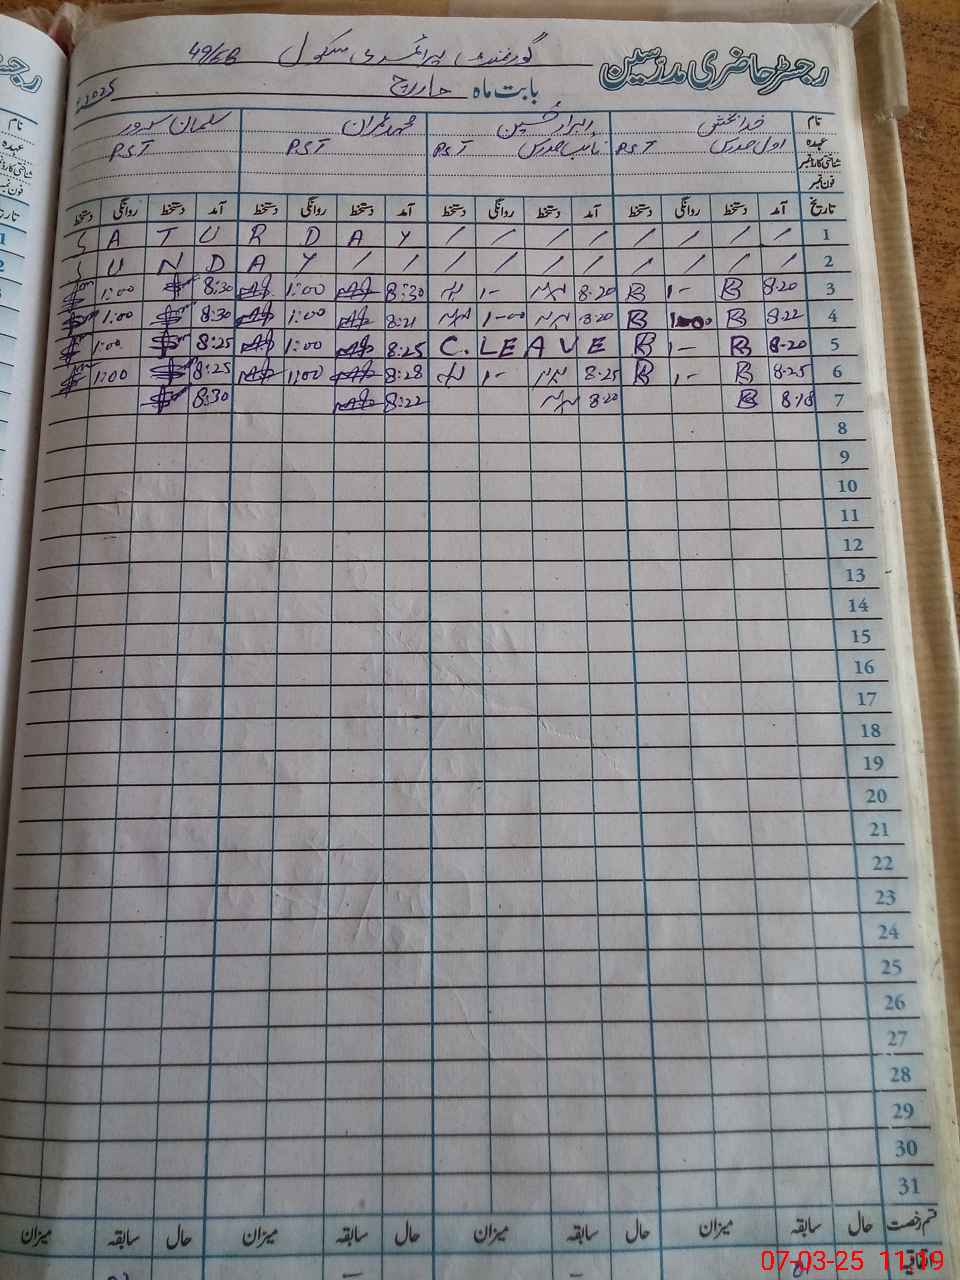 رجسٹر حاضری مدرسین گورنمنٹ پرائمری سکول 49/EB
بابت ماہ مارچ 2025
نام خدا بخش ابرار حسین محمد عمران سلمان سرور
عہدہ اول مدرس PST نائب مدرس PST PST PST
شناختی کارڈ نمبر
فون نمبر
تاریخ آمد دستخط روانگی دستخط آمد دستخط روانگی دستخط آمد دستخط روانگی دستخط آمد دستخط روانگی دستخط
1 / / / / / / / / S A T U R D A Y
2 / / / / / / / / / / S U N D A Y
3 8:20 B 1- B 8:20 1- 8:30 1:00 8:30 1:00
4 8:22 B 1-00 B 8:20 1-00 8:21 1:00 8:30 1:00
5 8:20 B 1- B C. LEAVE 8:25 1:00 8:25 1:00
6 8:25 B 1- B 8:25 1- 8:28 1:00 8:25 1:00
7 8:18 B 8:20 8:22 8:30
8
9
10
11
12
13
14
15
16
17
18
19
20
21
22
23
24
25
26
27
28
29
30
31
قسم رخصت حال سابقہ میزان حال سابقہ میزان حال سابقہ میزان حال سابقہ میزان
اتفاقیہ
07-03-25 11:19